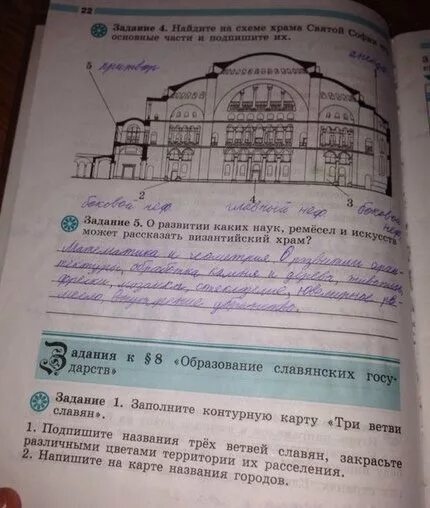 22
Задание 4. Найдите на схеме храма Святой Софии
основные части и подпишите их.
5 притвор
апсида
2
4
3
боковой неф
главный неф
боковой
неф
Задание 5. О развитии каких наук, ремёсел и искусств
может рассказать византийский храм?
Математика и геометрия. О развитии архи-
тектуры, обработка камня и дерева, живопись,
фрески, мозаика, стеклоделие, ювелирное ре-
месло,
Задания к § 8 «Образование славянских госу-
дарств»
Задание 1. Заполните контурную карту «Три ветви
славян».
1. Подпишите названия трёх ветвей славян, закрасьте
различными цветами территории их расселения.
2. Напишите на карте названия городов.